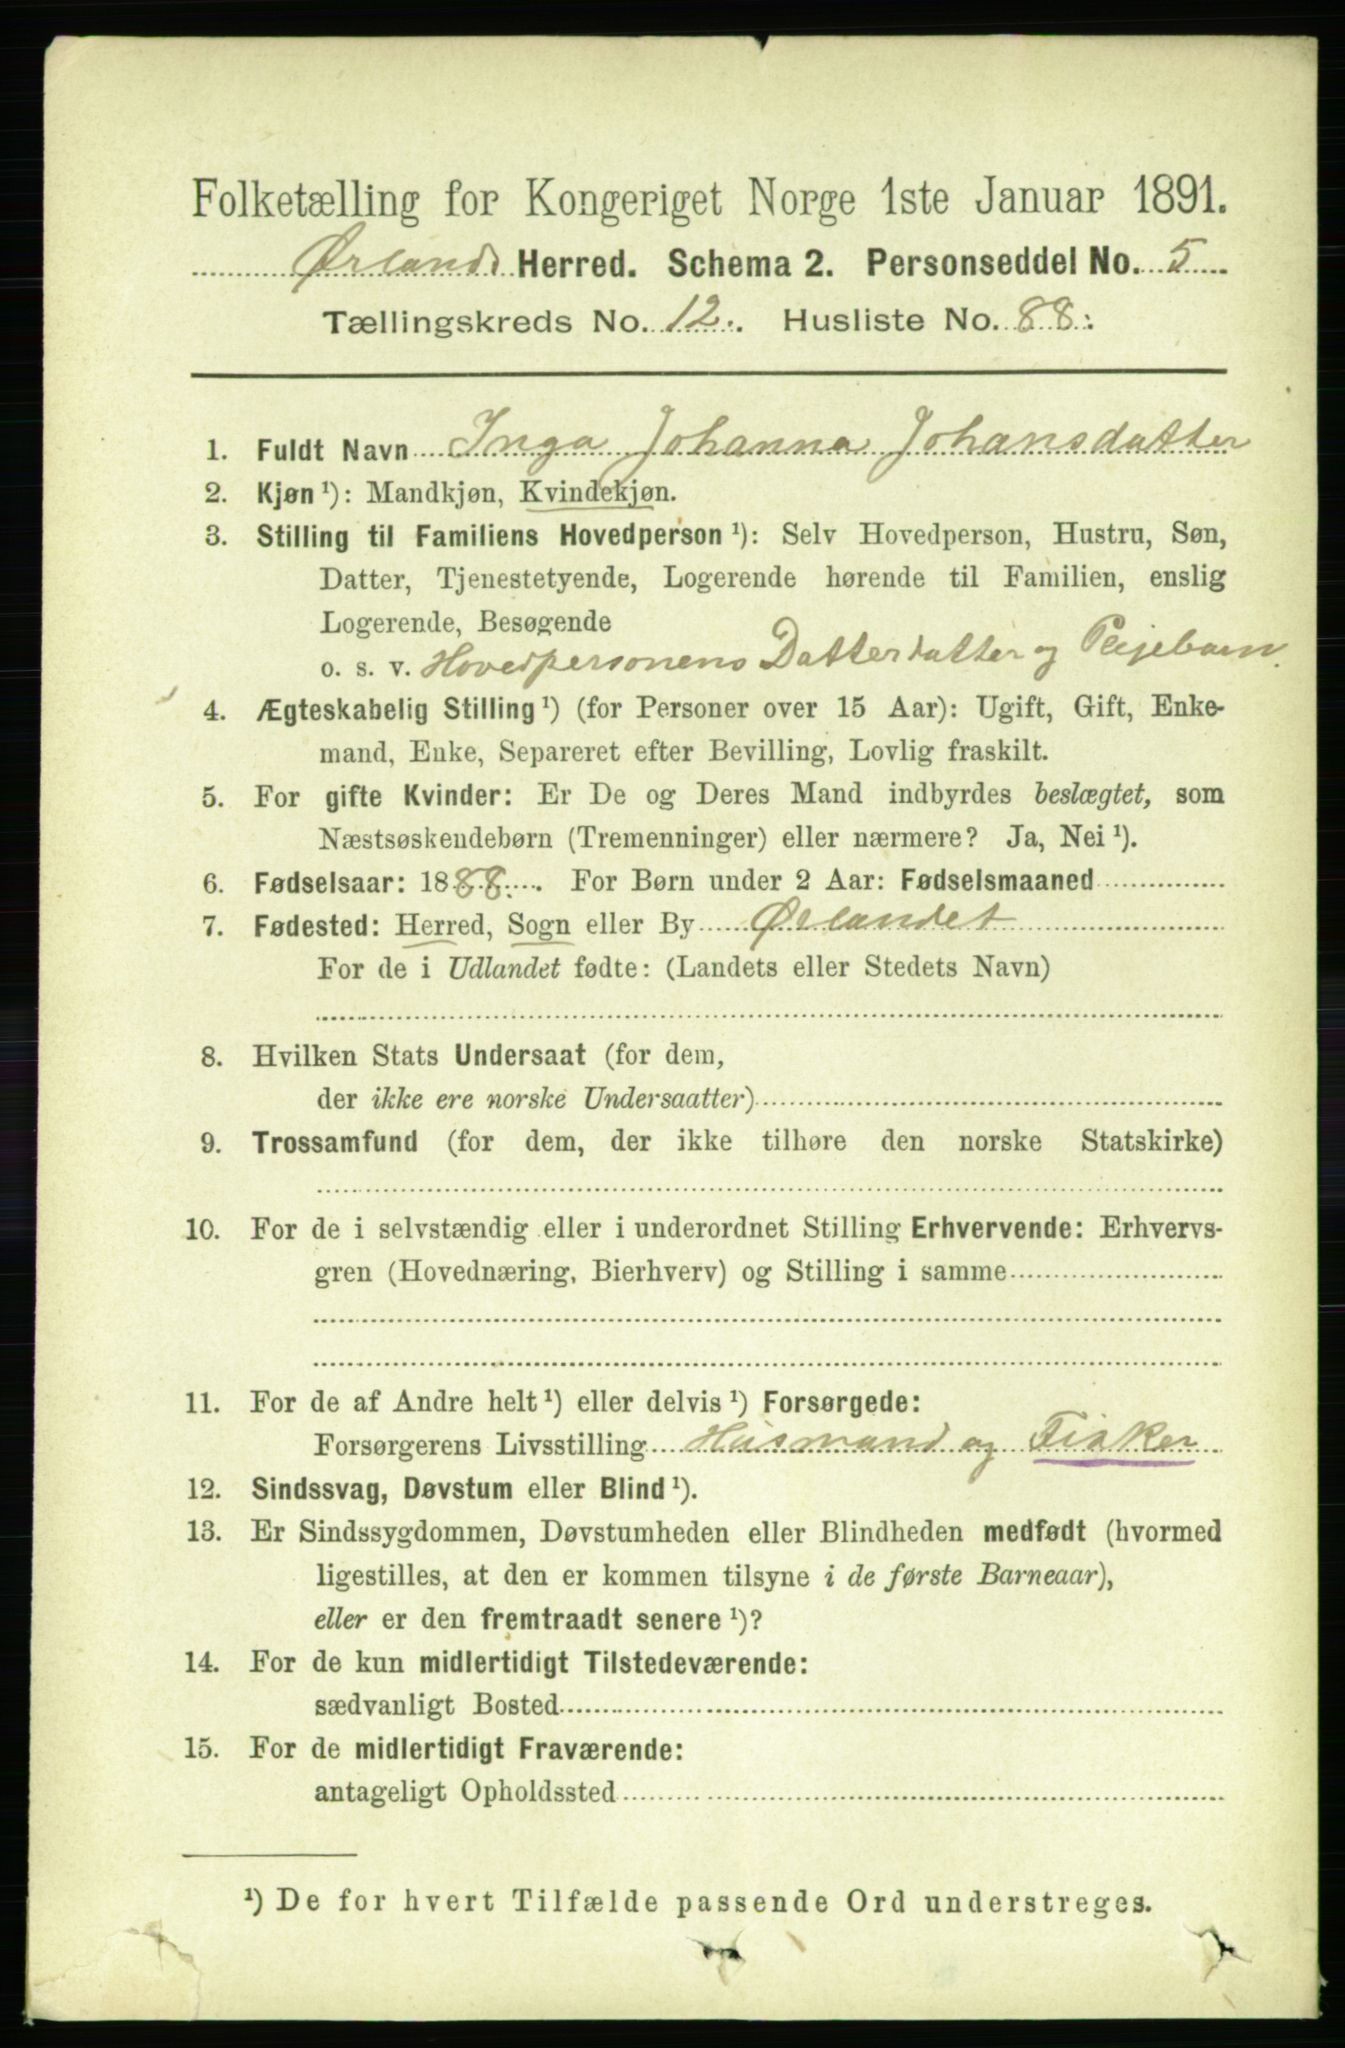 Folketælling for Kongeriget Norge 1ste Januar 1891.
Ørlands Herred. Schema 2. Personseddel No. 5
Tællingskreds No. 12. Husliste No. 88.
1. Fuldt Navn Inga Johanna Johansdatter
2. Kjøn ¹): Mandkjøn, Kvindekjøn.
3. Stilling til Familiens Hovedperson ¹): Selv Hovedperson, Hustru, Søn,
Datter, Tjenestetyende, Logerende hørende til Familien, enslig
Logerende, Besøgende
o. s. v. Hovedpersonens Datterdatter og Plejebarn.
4. Ægteskabelig Stilling ¹) (for Personer over 15 Aar): Ugift, Gift, Enke-
mand, Enke, Separeret efter Bevilling, Lovlig fraskilt.
5. For gifte Kvinder: Er De og Deres Mand indbyrdes beslægtet, som
Næstsøskendebørn (Tremenninger) eller nærmere? Ja, Nei ¹).
6. Fødselsaar: 1888. For Børn under 2 Aar: Fødselsmaaned
7. Fødested: Herred, Sogn eller By Ørlandet
For de i Udlandet fødte: (Landets eller Stedets Navn)
8. Hvilken Stats Undersaat (for dem,
der ikke ere norske Undersaatter)
9. Trossamfund (for dem, der ikke tilhøre den norske Statskirke)
10. For de i selvstændig eller i underordnet Stilling Erhvervende: Erhvervs-
gren (Hovednæring, Bierhverv) og Stilling i samme
11. For de af Andre helt ¹) eller delvis ¹) Forsørgede:
Forsørgerens Livsstilling Husmand og Fisker
12. Sindssvag, Døvstum eller Blind ¹).
13. Er Sindssygdommen, Døvstumheden eller Blindheden medfødt (hvormed
ligestilles, at den er kommen tilsyne i de første Barneaar),
eller er den fremtraadt senere ¹)?
14. For de kun midlertidigt Tilstedeværende:
sædvanligt Bosted
15. For de midlertidigt Fraværende:
antageligt Opholdssted
¹) De for hvert Tilfælde passende Ord understreges.